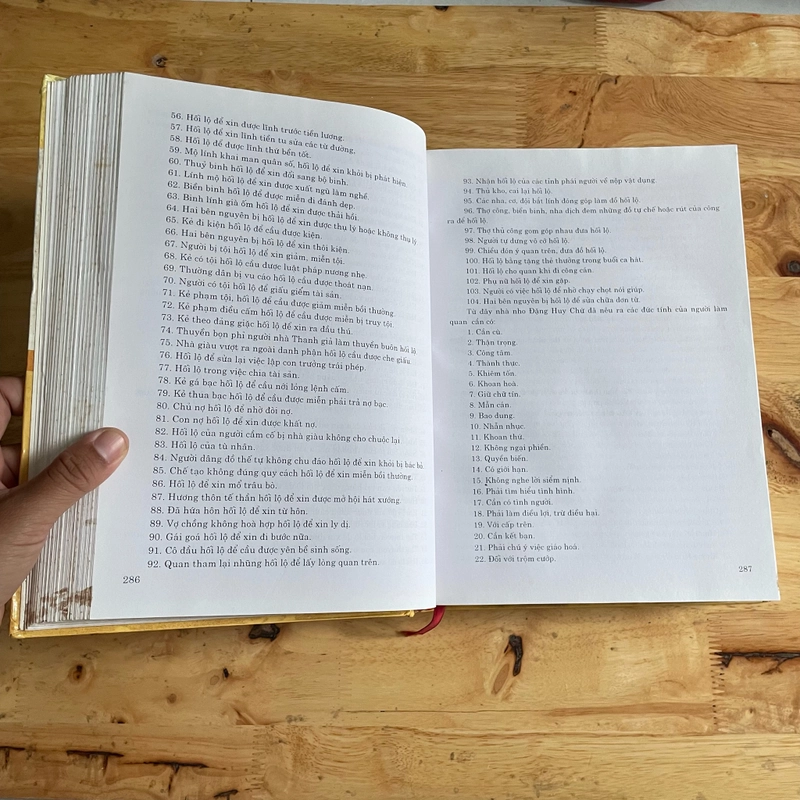 56. Hối lộ để xin được lĩnh trước tiền lương.
57. Hối lộ để xin lĩnh tiền tu sửa các từ đường,
58. Hối lộ để được lĩnh thứ bền tốt.
59. Mộ lính khai man quân số, hối lộ để xin khỏi bị phát hiện.
60. Thuỷ binh hối lộ để xin đổi sang bộ binh.
61. Lính mộ hối lộ để xin được xuất ngũ làm nghề.
62. Biền binh hối lộ để được miễn đi đánh dẹp.
63. Binh lính già ốm hối lộ để xin được thải hồi.
64. Hai bên nguyên bị hối lộ để xin được thụ lý hoặc không thụ lý
65. Kẻ đi kiện hối lộ để cầu được kiện.
66. Hai bên nguyên bị hối lộ để xin thôi kiện.
67. Người bị tội hối lộ để xin giảm, miễn tội.
68. Kẻ có tội hối lộ cầu được luật pháp nương nhẹ.
69. Thường dân bị vu cáo hối lộ cầu được thoát nạn.
70. Người có tội hối lộ để giấu giếm tài sản.
71. Kẻ phạm tội, hối lộ để cầu được giảm miễn bồi thường.
72. Kẻ phạm điều cấm hối lộ để cầu được miễn bị truy tội.
73. Kẻ theo đảng giặc hối lộ để xin ra đầu thú.
74. Thuyền bọn phỉ người nhà Thanh giả làm thuyền buôn hối lộ
75. Nhà giàu vượt ra ngoài danh phận hối lộ cầu được che giấu.
76. Hối lộ để sửa lại việc lập con trưởng trái phép.
77. Hối lộ trong việc chia tài sản.
78. Kẻ gá bạc hối lộ để cầu nới lỏng lệnh cấm.
79. Kẻ thua bạc hối lộ để cầu được miễn phải trả nợ bạc.
80. Chủ nợ hối lộ để nhờ đòi nợ.
81. Con nợ hối lộ để xin được khất nợ.
82. Hối lộ của người cầm cố bị nhà giàu không cho chuộc lại
83. Hối lộ của tù nhân.
84. Người dâng đồ thế tự không chu đáo hối lộ để xin khỏi bị bác bỏ.
85. Chế tạo không đúng quy cách hối lộ để xin miễn bồi thường.
86. Hối lộ để xin mổ trâu bò.
87. Hương thôn tế thần hối lộ để xin được mở hội hát xướng.
88. Đã hứa hôn hối lộ để xin từ hôn.
89. Vợ chồng không hoà hợp hối lộ để xin ly dị.
90. Gái goá hối lộ để xin đi bước nữa.
91. Cô đầu hối lộ để cầu được yên bề sinh sống.
92. Quan tham lại nhũng hối lộ để lấy lòng quan trên.
286
93. Nhận hối lộ của các tỉnh phái người về nộp vật dụng
94. Thủ kho, cai lại hối lộ.
95. Các nha, cơ, đội bắt lính đóng góp làm đồ hối lộ.
96. Thợ công, biền binh, nha dịch đem những đồ tự chế hoặc rút của công
ra để hối lộ.
97. Thợ thủ công gom góp nhau đưa hối lộ.
98. Người tự dưng vô cớ hối lộ.
99. Chiều đón ý quan trên, đưa đồ hối lộ.
100. Hối lộ bằng tặng thẻ thưởng trong buổi ca hát.
101. Hối lộ cho quan khi đi công cán.
102. Phụ nữ hối lộ để xin gặp.
103. Người có việc hối lộ để nhờ chạy chọt nói giúp.
104. Hai bên nguyên bị hối lộ để sửa chữa đơn từ.
Từ đây nhà nho Đặng Huy Chứ đã nêu ra các đức tính của người làm
quan cần có:
1. Cần cù.
2. Thận trọng.
3. Công tâm.
4. Thành thực.
5. Khiêm tốn.
6. Khoan hoà.
7. Giữ chữ tín.
8. Mẫn cán.
9. Bao dung.
10. Nhẫn nhục.
11. Khoan thứ.
12. Không ngại phiền.
13. Quyền biến.
14. Có giới hạn.
15. Không nghe lời siểm nịnh.
16. Phải tìm hiểu tình hình.
17. Cần có tình người.
18. Phải làm điều lợi, trừ điều hại.
19. Với cấp trên.
20. Cần kết bạn.
21. Phải chú ý việc giáo hoá.
22. Đối với trộm cướp.
287